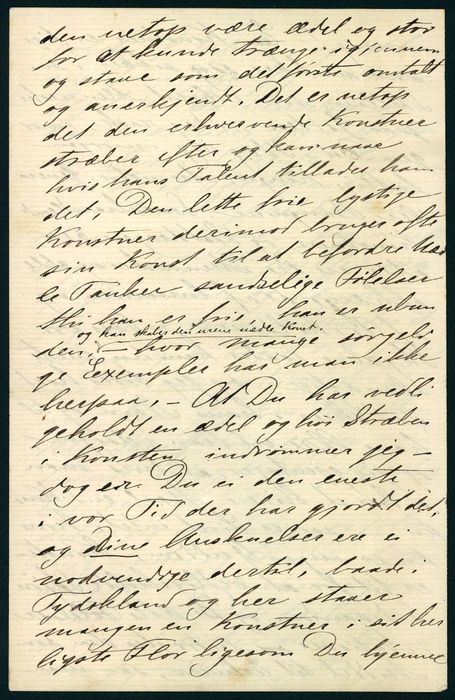 den netop være ædel og stor
for at kunde trænge igiennem
og staae som det første omtalt
og anerkjendt. Det er netop
det den erhvervende Konstner
stræber efter og kan naae
hvis hans Talent tillader ham
det. Den lette frie lystige
Konstner derimod bruger ofte
sin Konst til at befordre
le Tanker sandselige Følelser
thi han er frie, han er ubun
og han skaber den urene uædle Konst.
den; – hvor mange sørgeli
ge Exempler har man ikke
herpaa, – At Du har vedli
geholdt en ædel og høi Stræben
i Konsten indrømmer jeg –
dog er Du ei den eneste
i vor Tid der har gjordt det,
og Dine Anskuelser ere ei
nødvendige dertil, baade i
Tydskland og her staaer
mangen en Konstner i sit her
ligste Flor ligesom Du hjemme